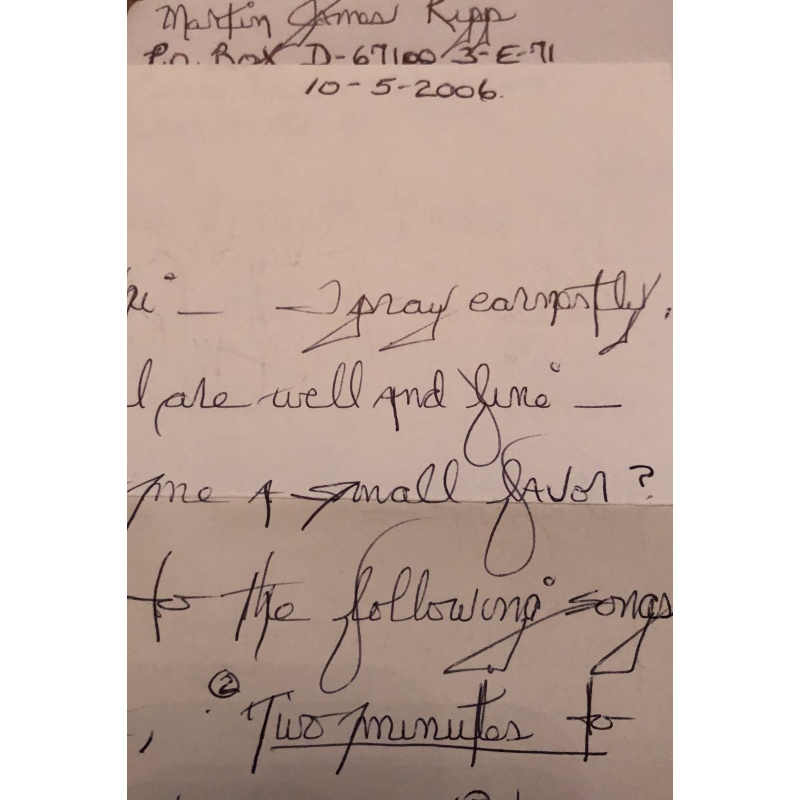 Martin James Kipp
P.O. Box D-67100 3-E-71
10-5-2006.
— I pray earnestly,
l are well and fine —
me A small favor?
to the following songs
, ② Two minutes to